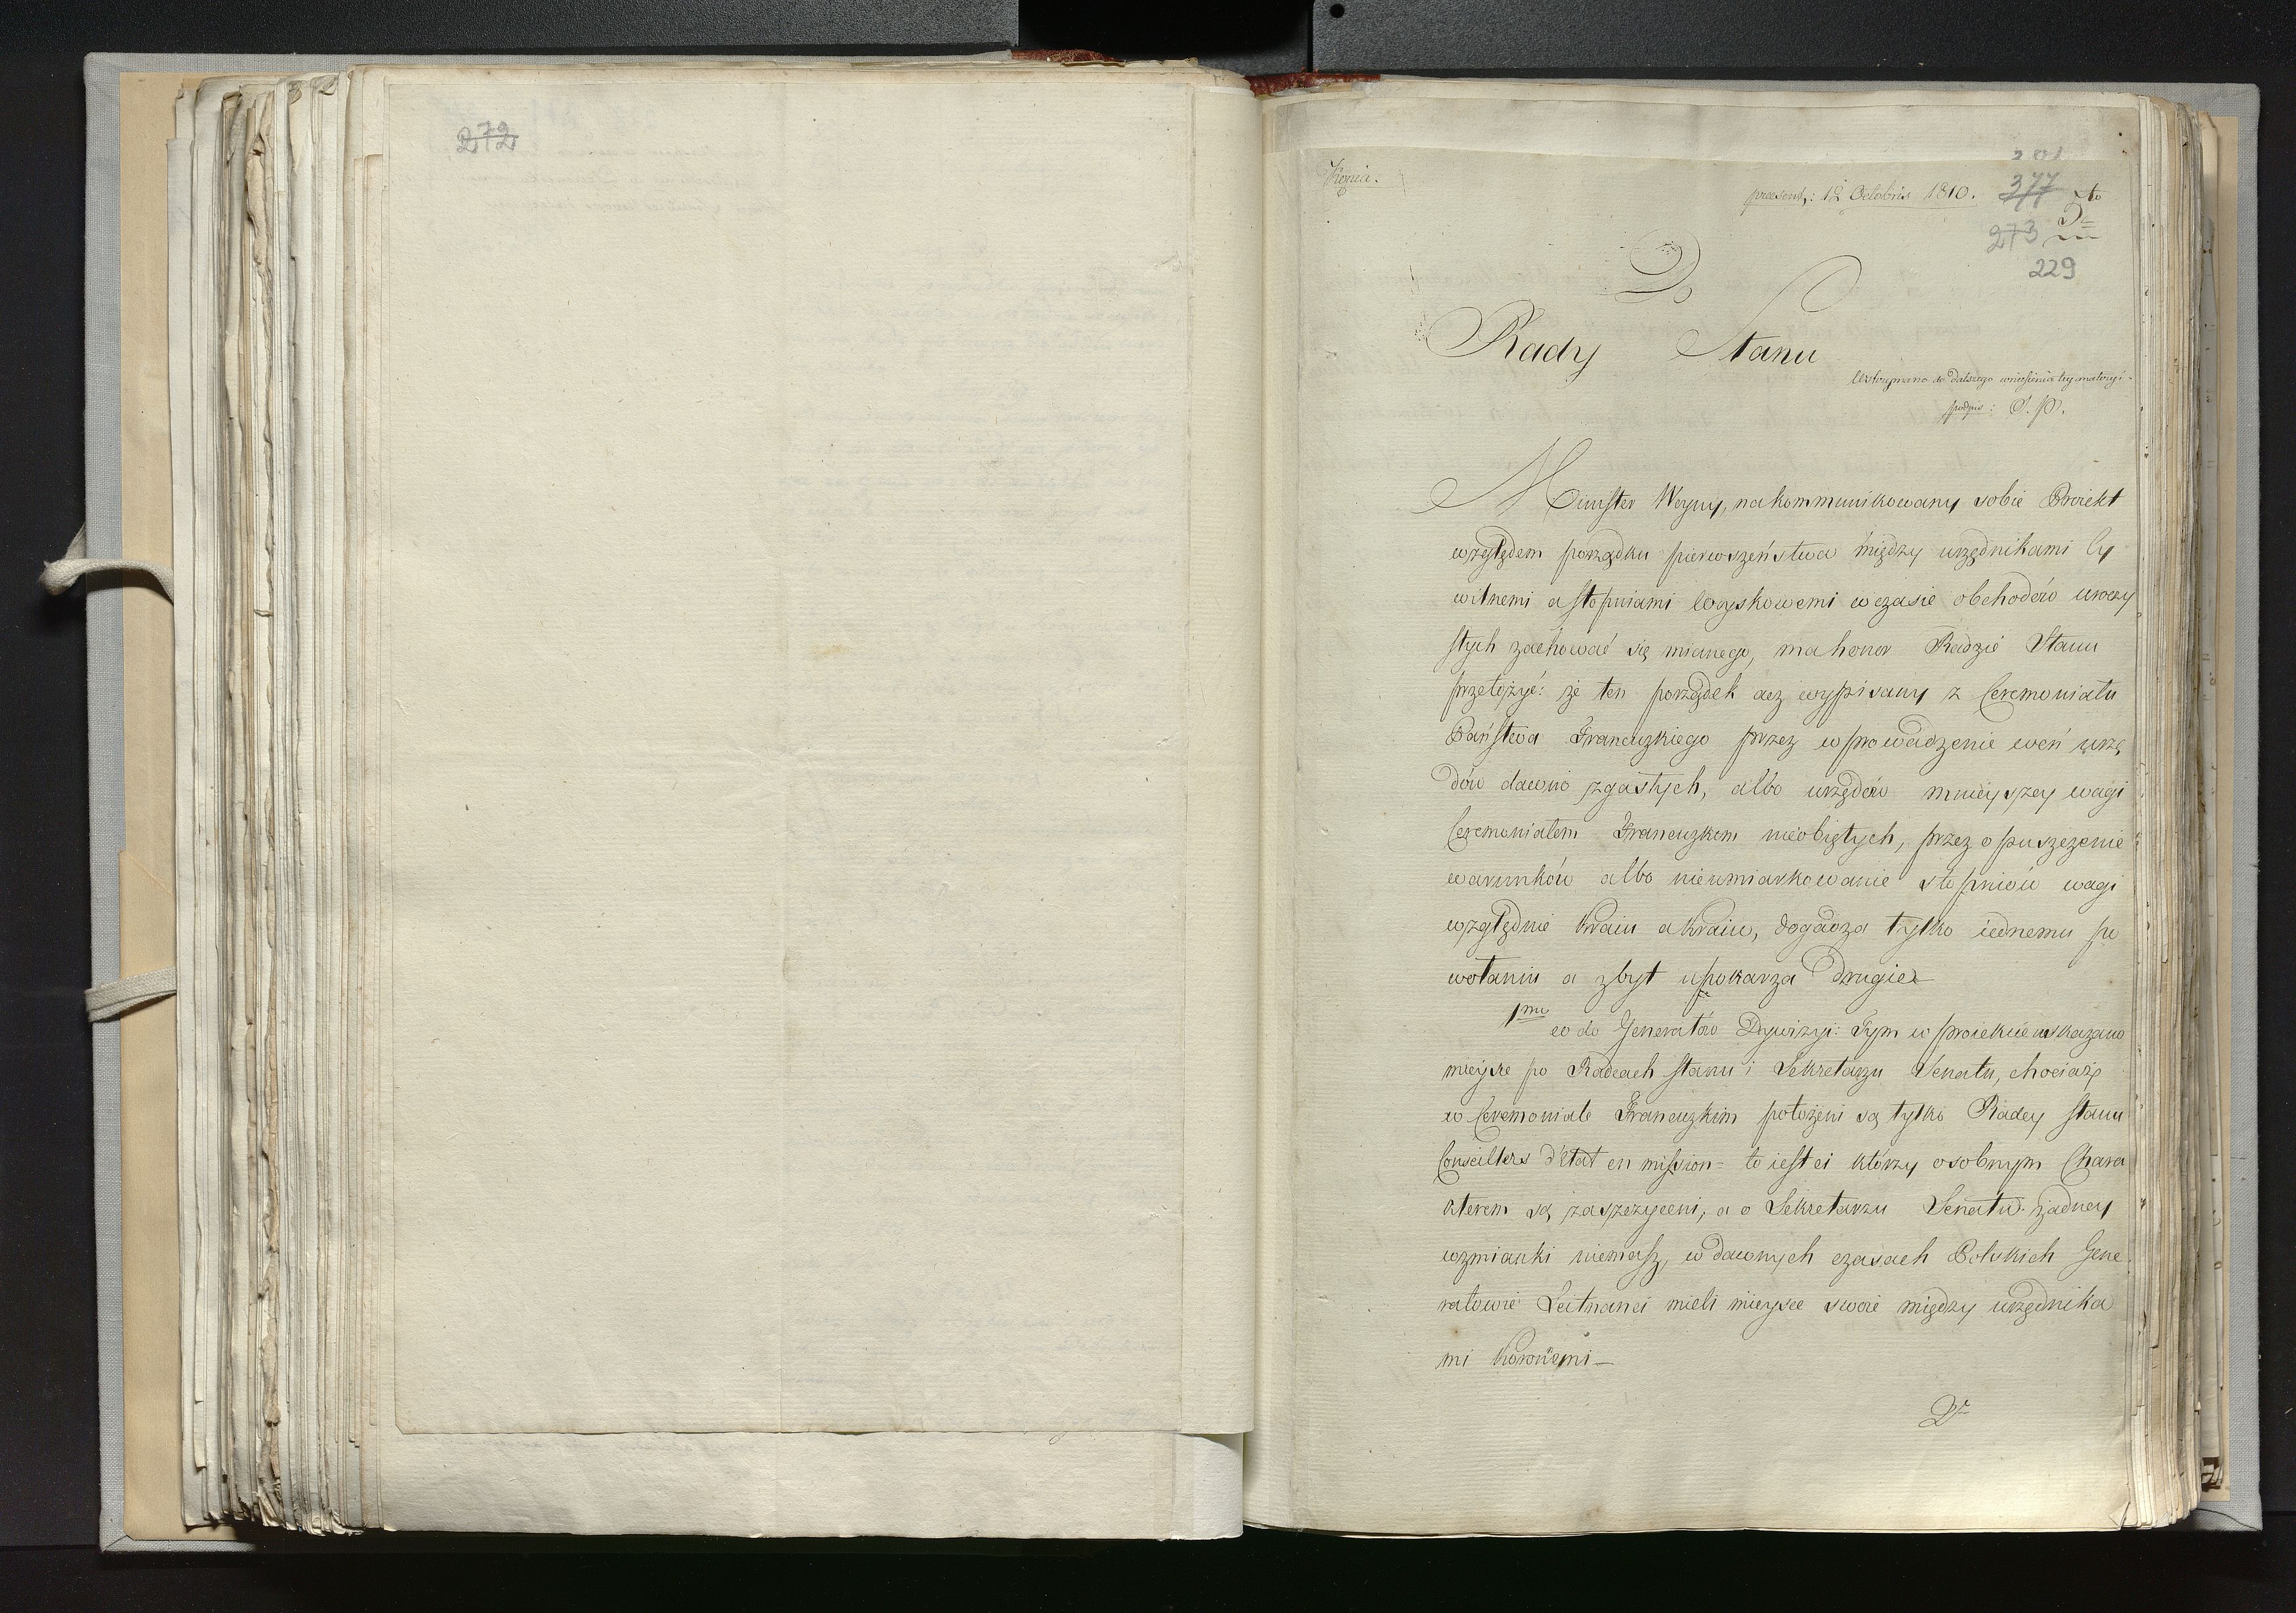 272
Kopia.
praesent: 12 Octobris 1810.
377
273
229
Do
Rady Stanu
Wstrzymano do dalszego wniesienia tey materyi -
podpis: S. P.
Minister Woyny, na kommunikowany sobie Proiekt
względem porządku pierwszeństwa między urzędnikami Cy
wilnemi a stopniami woyskowemi w czasie obchodów uroczy
stych zachować się mianego, ma honor Radzie Stanu
przełożyć: że ten porządek acz wypisany z Ceremoniału
Państwa Francuzkiego przez wprowadzenie weń urzę
dów dawno zgasłych, albo urzędów mnieyszey wagi
Ceremoniałem Francuzkem nieobiętych, przez opuszczenie
warunków albo nieumiarkowanie stopniów wagi
względnie kraiu a kraiu, dogadza tylko iednemu po
wołaniu a zbyt upokarza drugie
1mo co do Generałów Dywizyi: Tym w proiekcie wskazano
mieysce po Radcach stanu i Sekretarzu Senatu, chociaż
w Ceremoniale Francuzkim położeni są tylko Radcy stanu
Conseillers d'état en mission = to iest ci którzy osobnym Chara
kterem są zaszczyceni, a o Sekretarzu Senatu żadney
wzmianki niemasz, w dawnych czasach Polskich Gene
rałowie Leitnanci mieli mieysce swoie między urzędnika
mi koronemi —